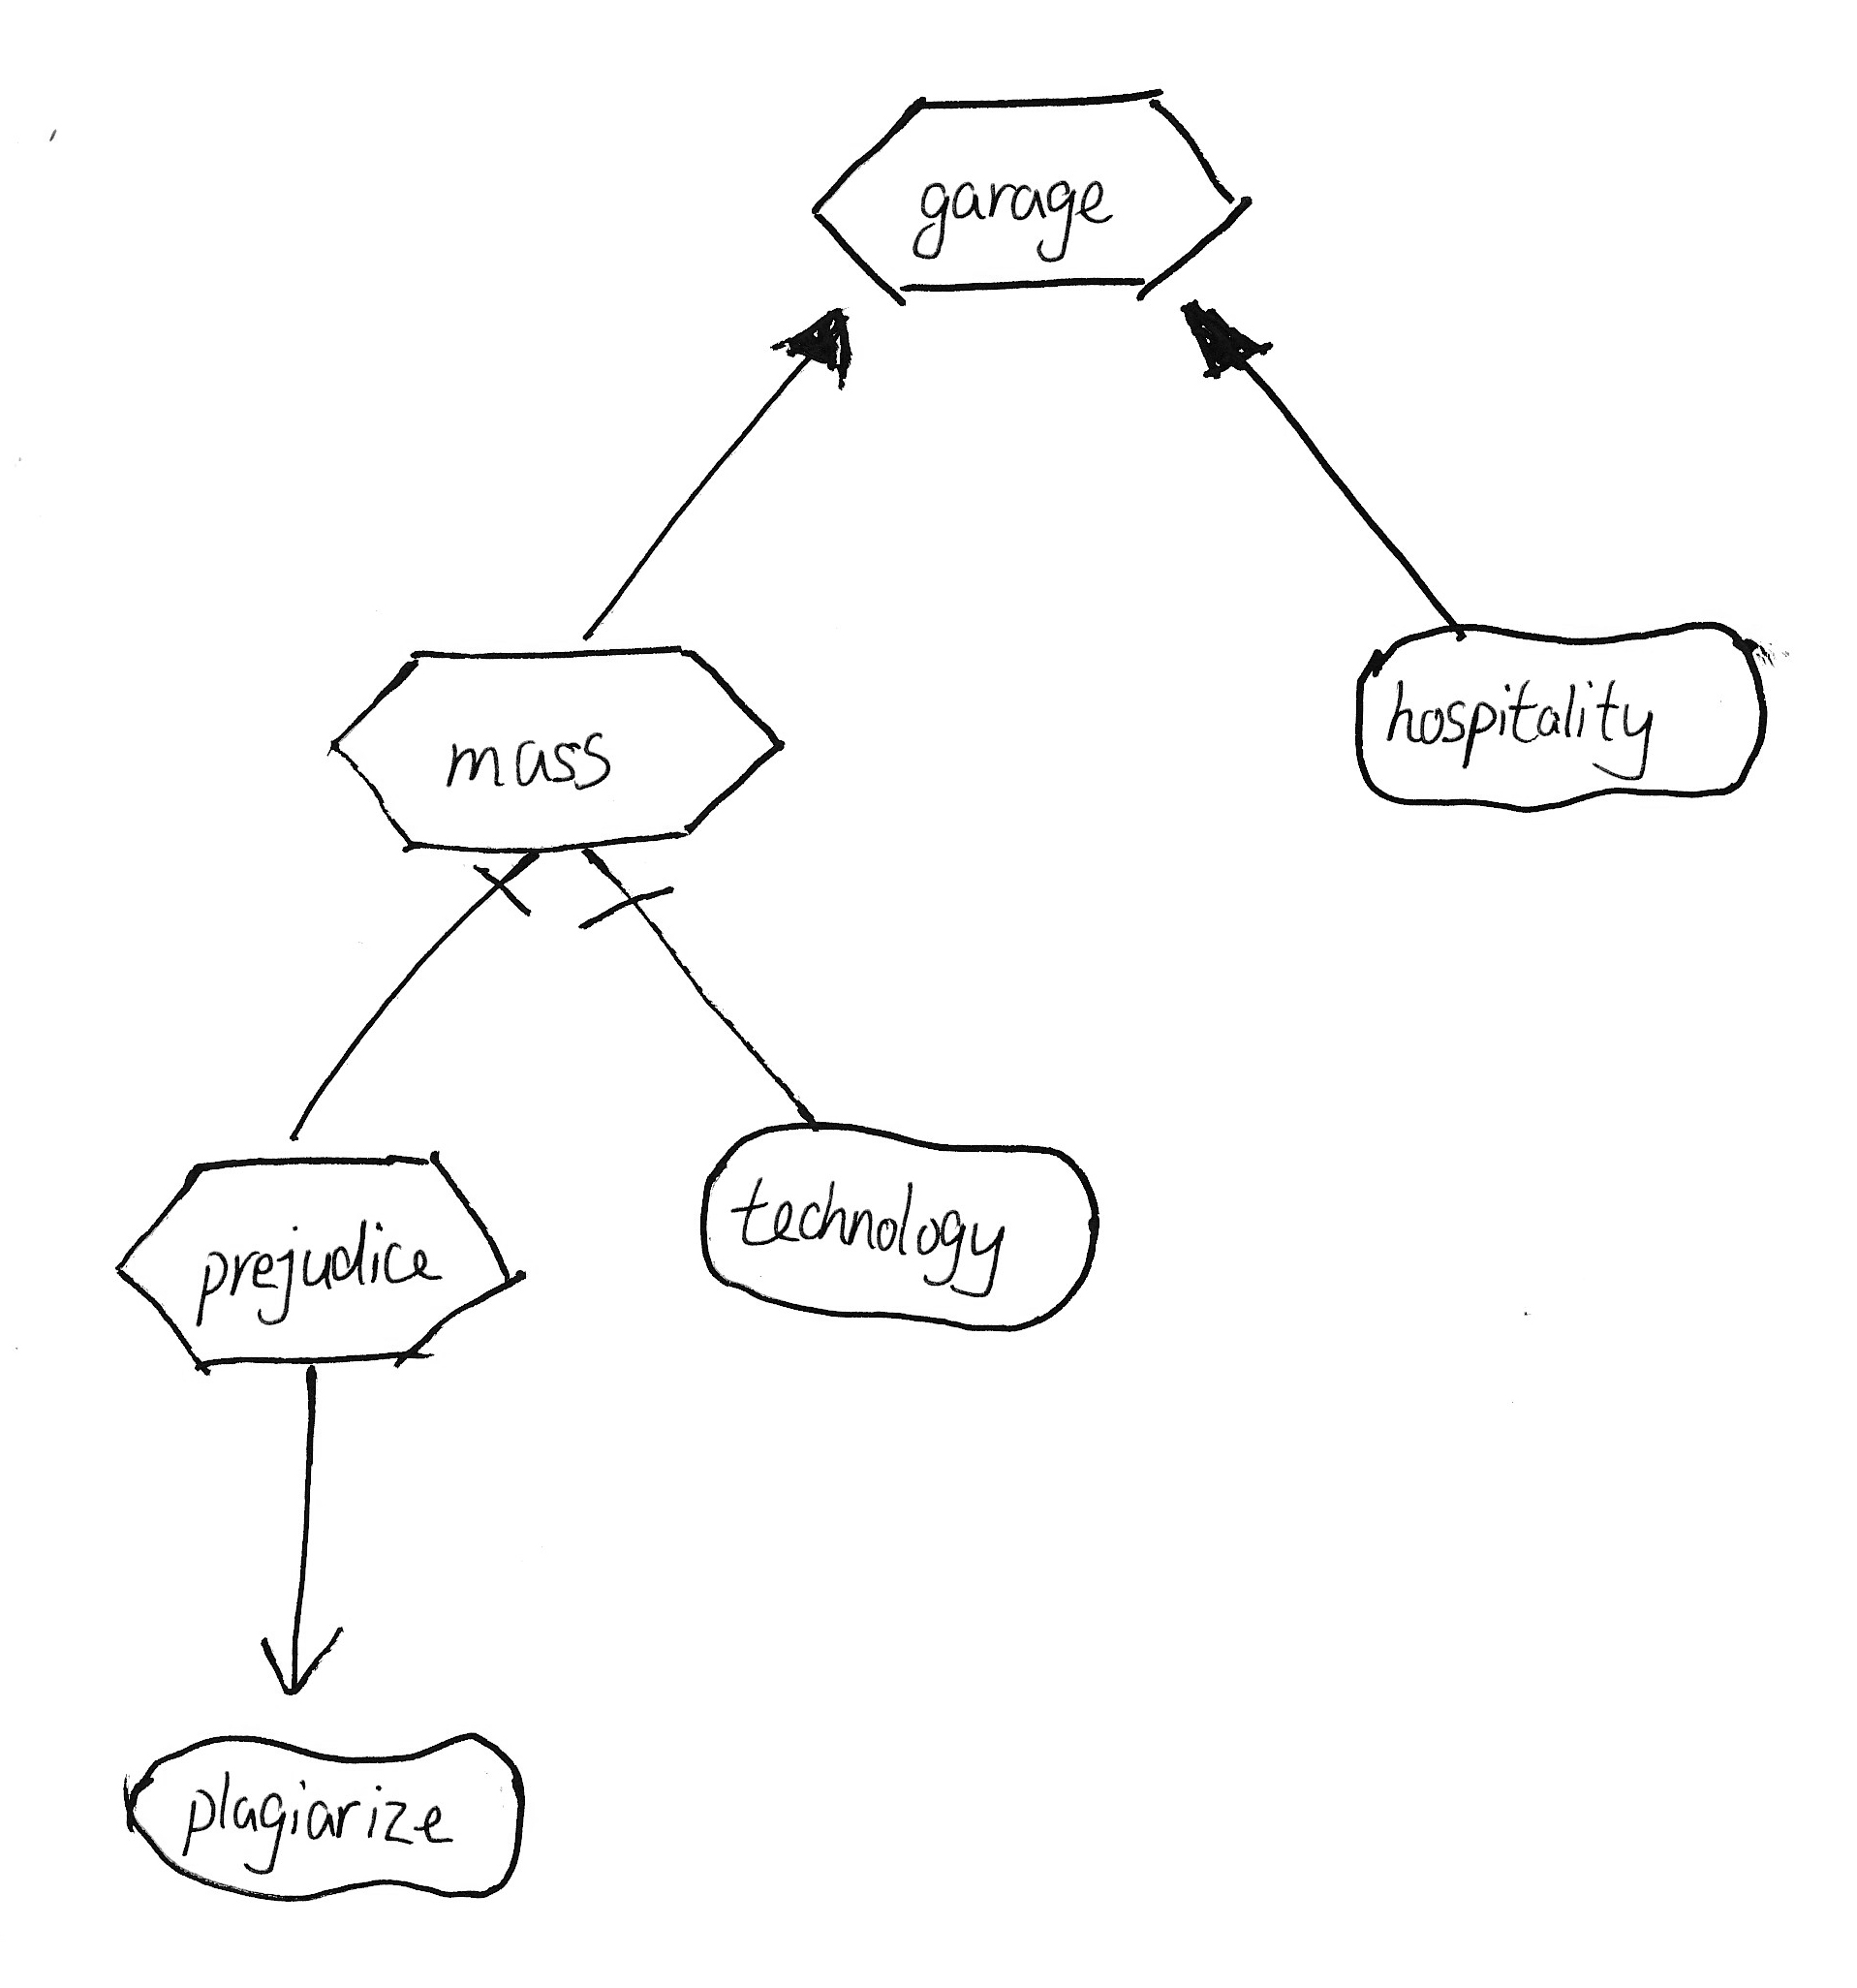 garage
mass
hospitality
prejudice
technology
plagiarize